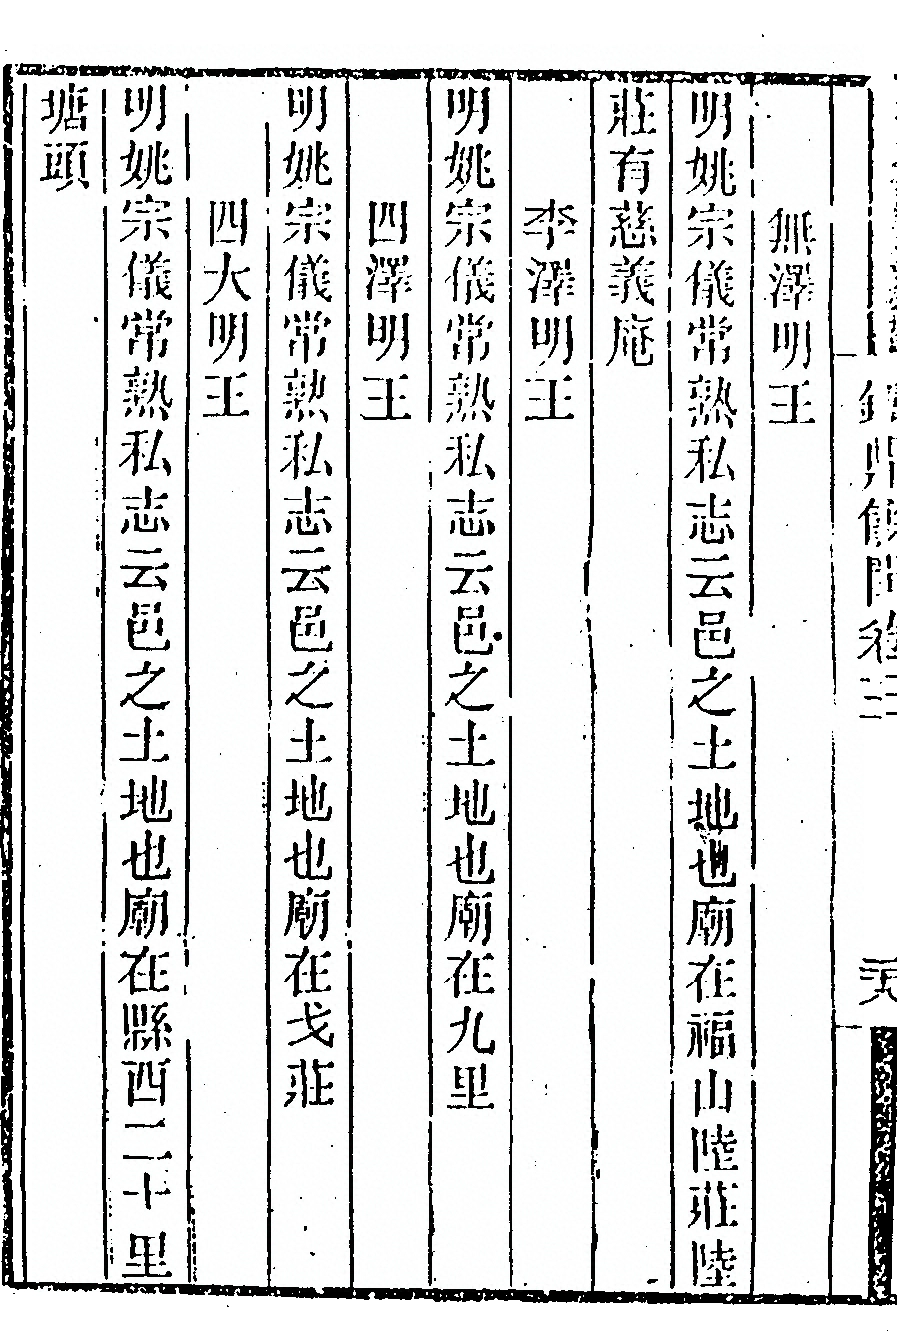 無澤明王
明姚宗儀常熟私志云邑之土地也廟在福山陸莊陸
莊有慈義庵
李澤明王
明姚宗儀常熟私志云邑之土地也廟在九里
四澤明王
明姚宗儀常熟私志云邑之土地也廟在戈莊
四大明王
明姚宗儀常熟私志云邑之土地也廟在縣西二十里
塘頭